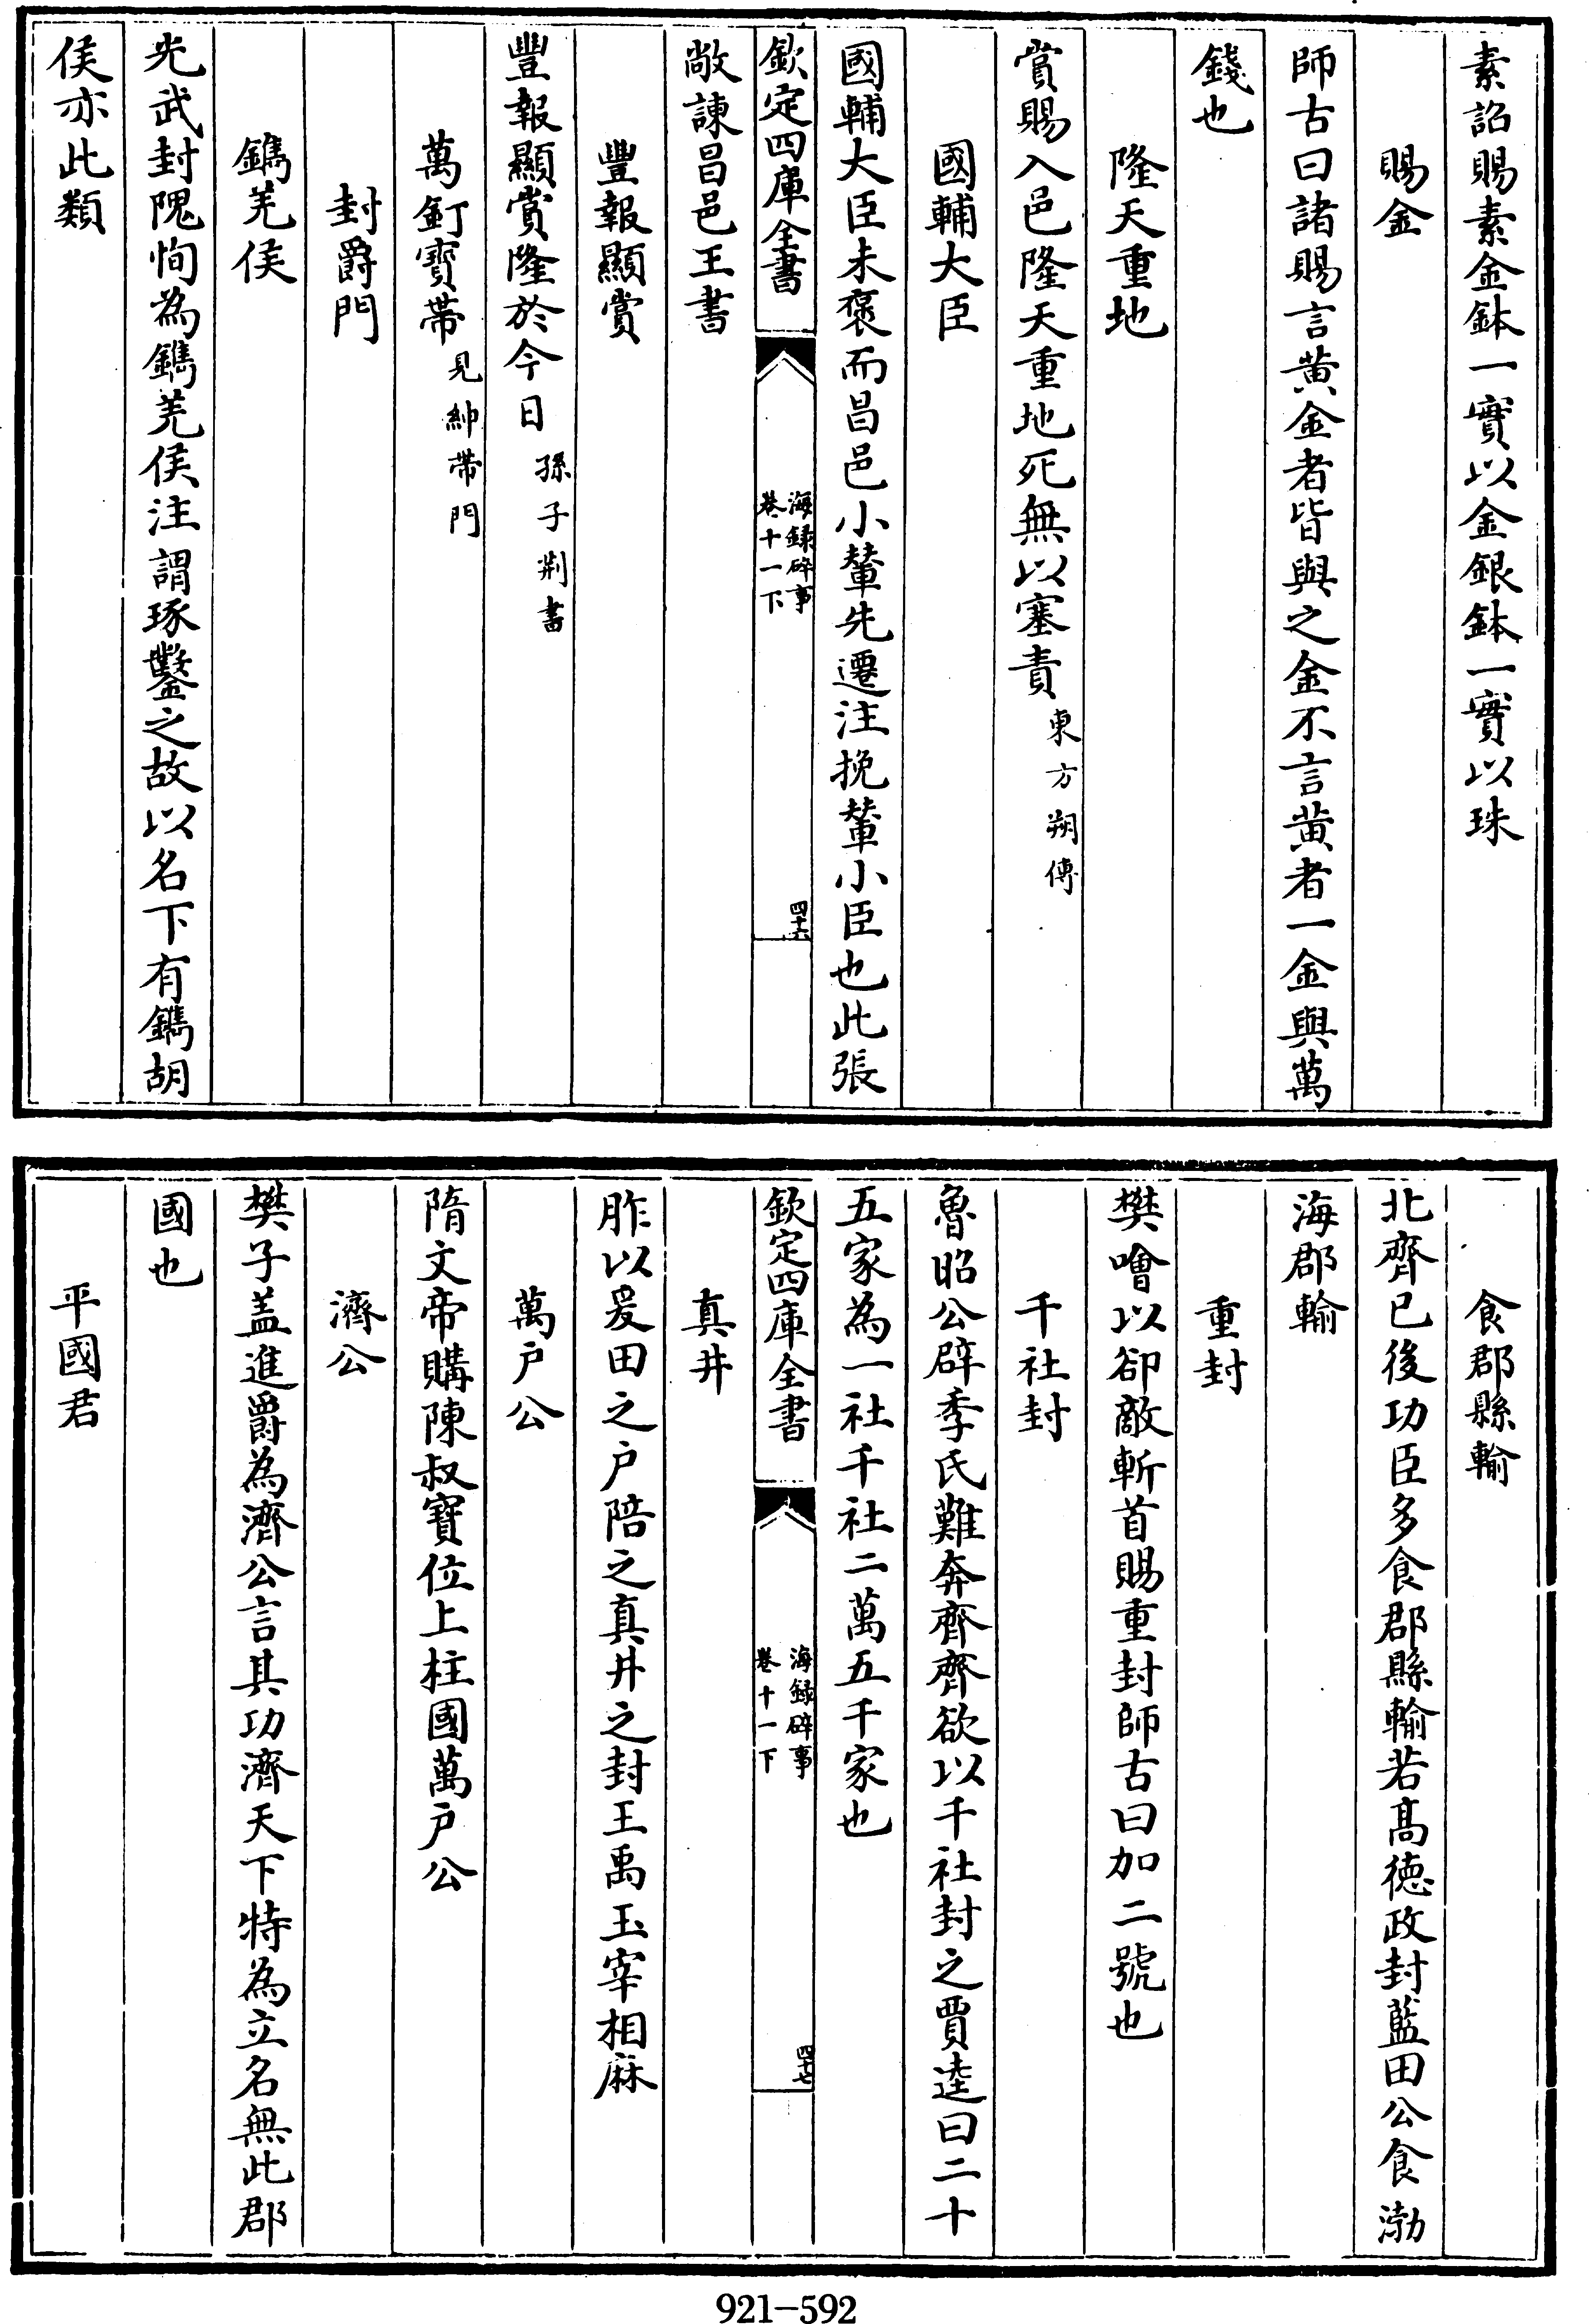 素詔賜素金鉢一實以金銀鉢一實以珠
賜金
師古曰諸賜言黄金者皆與之金不言黄者一金與萬
錢也
隆天重地
賞賜入邑隆天重地死無以塞責東方朔傳
國輔大臣
國輔大臣未褒而昌邑小輦先遷注挽輦小臣也此張
欽定四庫全書
海録碎事
卷十一下
四十六
敞諫昌邑王書
豐報顯賞
豐報顯賞隆於今日孫子荆書
萬釘寶帶見紳帶門
封爵門
鐫羌侯
光武封隗恂為鐫羌侯注謂琢鑿之故以名下有鐫胡
侯亦此類
食郡縣輸
北齊已後功臣多食郡縣輸若髙徳政封藍田公食渤
海郡輸
重封
樊噲以卻敵斬首賜重封師古曰加二號也
千社封
魯昭公辟季氏難奔齊齊欲以千社封之賈逵曰二十
五家為一社千社二萬五千家也
欽定四庫全書
海録碎事
卷十一下
四十七
真井
胙以爰田之户陪之真井之封王禹玉宰相麻
萬户公
隋文帝購陳叔寶位上柱國萬户公
濟公
樊子盖進爵為濟公言其功濟天下特為立名無此郡
國也
平國君
921-592